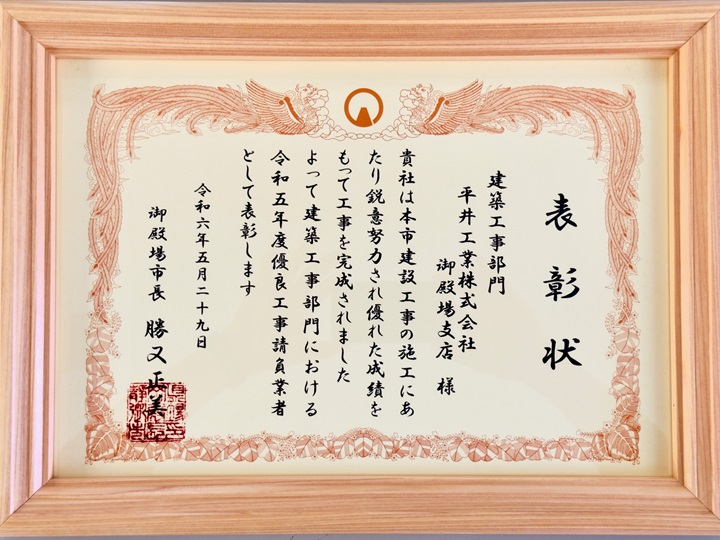 表彰状
建築工事部門
平井工業株式会社
御殿場支店 様
貴社は本市建設工事の施工にあ
たり鋭意努力され優れた成績を
もって工事を完成されました
よって建築工事部門における
令和五年度優良工事請負業者
として表彰します
令和六年五月二十九日
御殿場市長 勝又正美